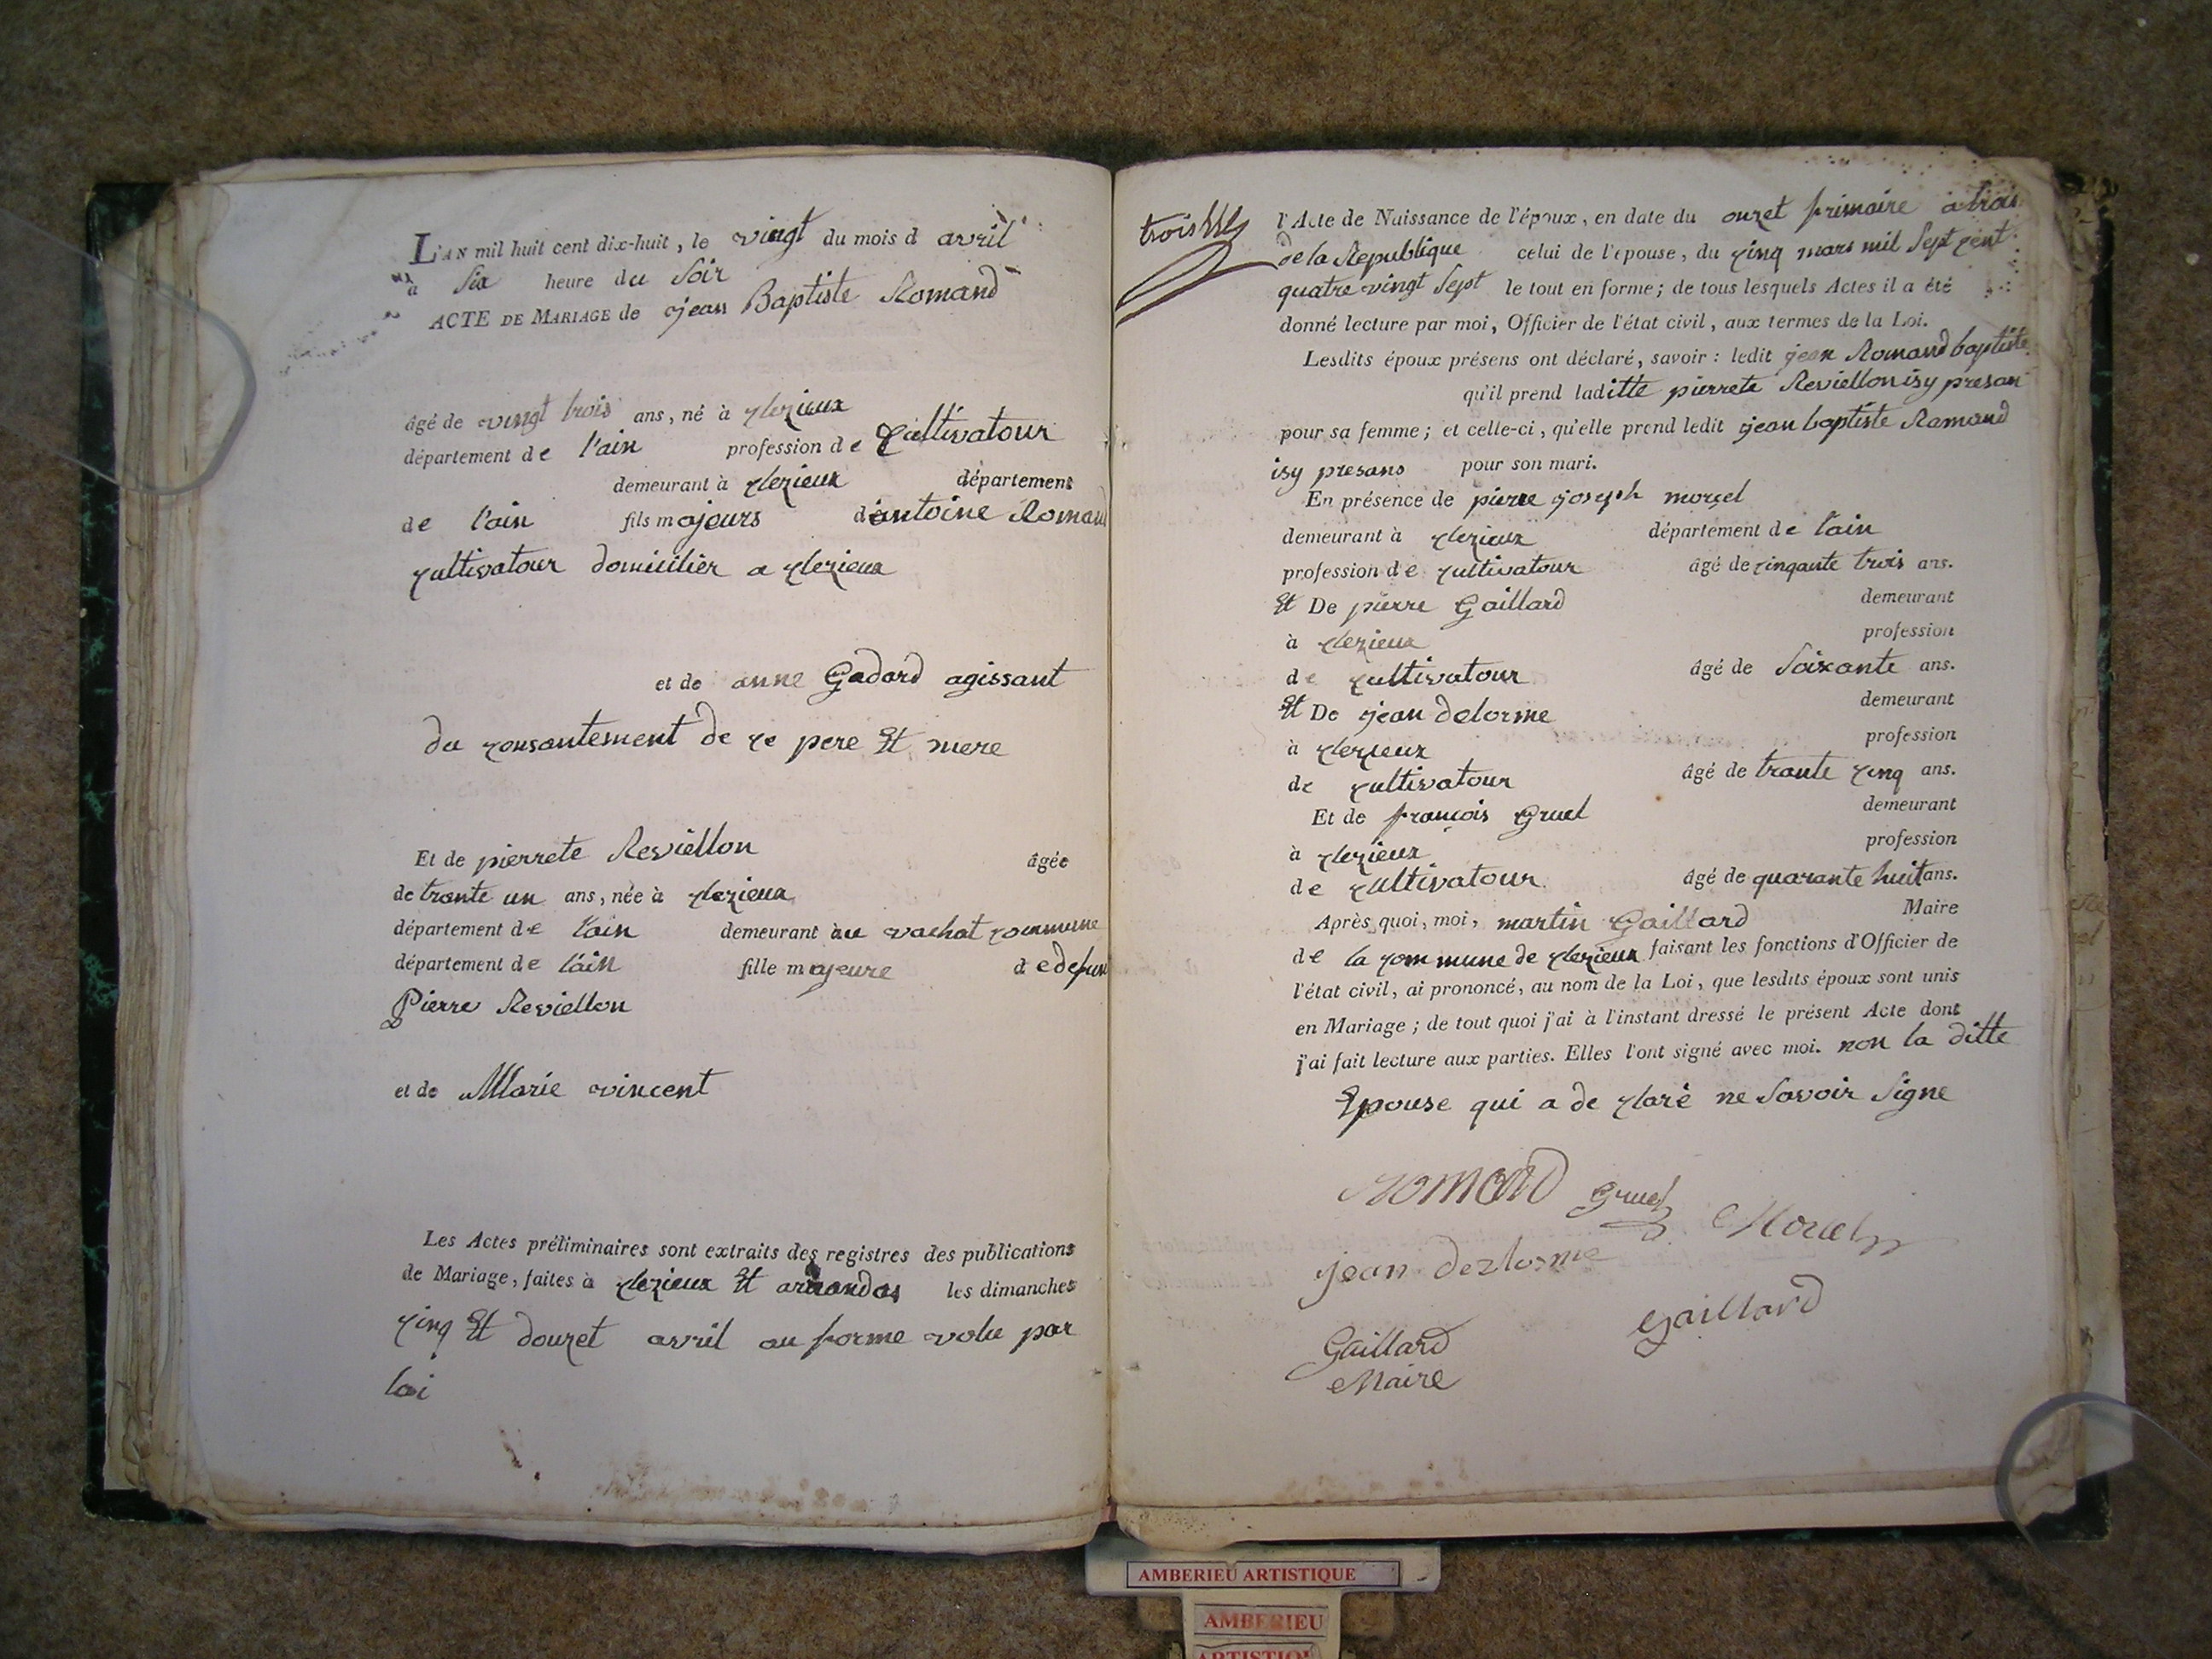 L'AN mil huit cent dix-huit, le vingt du mois d avril
à Six heure du Soir
ACTE DE MARIAGE de jean Baptiste Romand
âgé de vingt trois ans, né à clezieux
département de l'ain profession de Cultivatour
demeurant à clezieux département
de l'ain fils majeurs d'antoine Romand
cultivatour domicilier a clezieux
et de anne Gadard agissant
du consantement de ce pere Et mere
Et de pierrete Reviellon âgée
de trante un ans, née à clezieux
département de l'ain demeurant au vachat commune
département de l'ain fille majeure de defun
Pierre Reviellon
et de Marie vincent
Les Actes préliminaires sont extraits des registres des publications
de Mariage, faites à clezieux Et arandas les dimanches
cinq Et douzet avril au forme volu par
loi
troisAM
l'Acte de Naissance de l'époux, en date du onzet frimaire a trois
de la Republique celui de l'épouse, du cinq mars mil Sept cent
quatre vingt Sept le tout en forme; de tous lesquels Actes il a été
donné lecture par moi, Officier de l'état civil, aux termes de la Loi.
Lesdits époux présens ont déclaré, savoir : ledit jean Romand baptiste
qu'il prend laditte pierrete Reviellon isy presan
pour sa femme; et celle-ci, qu'elle prend ledit jean baptiste Romand
isy presans pour son mari.
En présence de pierre joseph morcel
demeurant à clezieux département de l'ain
profession de cultivatour âgé de cinqante trois ans.
Et De pierre Gaillard demeurant
à clezieux profession
de cultivatour âgé de Soixante ans.
Et De jean delorme demeurant
à clezieux profession
de cultivatour âgé de trante cinq ans.
Et de françois Gruel demeurant
à clezieux profession
de cultivatour âgé de quarante huit ans.
Après quoi, moi, martin Gaillard Maire
de la commune de clezieux faisant les fonctions d'Officier de
l'état civil, ai prononcé, au nom de la Loi, que lesdits époux sont unis
en Mariage; de tout quoi j'ai à l'instant dressé le présent Acte dont
j'ai fait lecture aux parties. Elles l'ont signé avec moi. non la ditte
Epouse qui a de claré ne Savoir Signe
Romand Gruel Morcel
jean dezlorme
Gaillard
Gaillard
Maire
AMBERIEU ARTISTIQUE
AMBERIEU
ARTISTIQUE